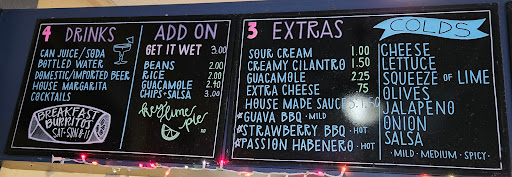 4 DRINKS
CAN JUICE/SODA
BOTTLED WATER
DOMESTIC/IMPORTED BEER
HOUSE MARGARITA
COCKTAILS
BREAKFAST
BURRITO
SAT-SUN 8-11
ADD ON
GET IT WET 3.00
BEANS 2.00
RICE 2.00
GUACAMOLE 2.90
CHIPS·SALSA 3.00
key lime
pie
3 EXTRAS
SOUR CREAM 1.00
CREAMY CILANTRO 1.50
GUACAMOLE 2.25
EXTRA CHEESE .75
HOUSE MADE SAUCES 1.50
*GUAVA BBQ · MILD
*STRAWBERRY BBQ · HOT
*PASSION HABENERO · HOT
COLDS
CHEESE
LETTUCE
SQUEEZE OF LIME
OLIVES
JALAPENO
ONION
SALSA
· MILD · MEDIUM · SPICY ·